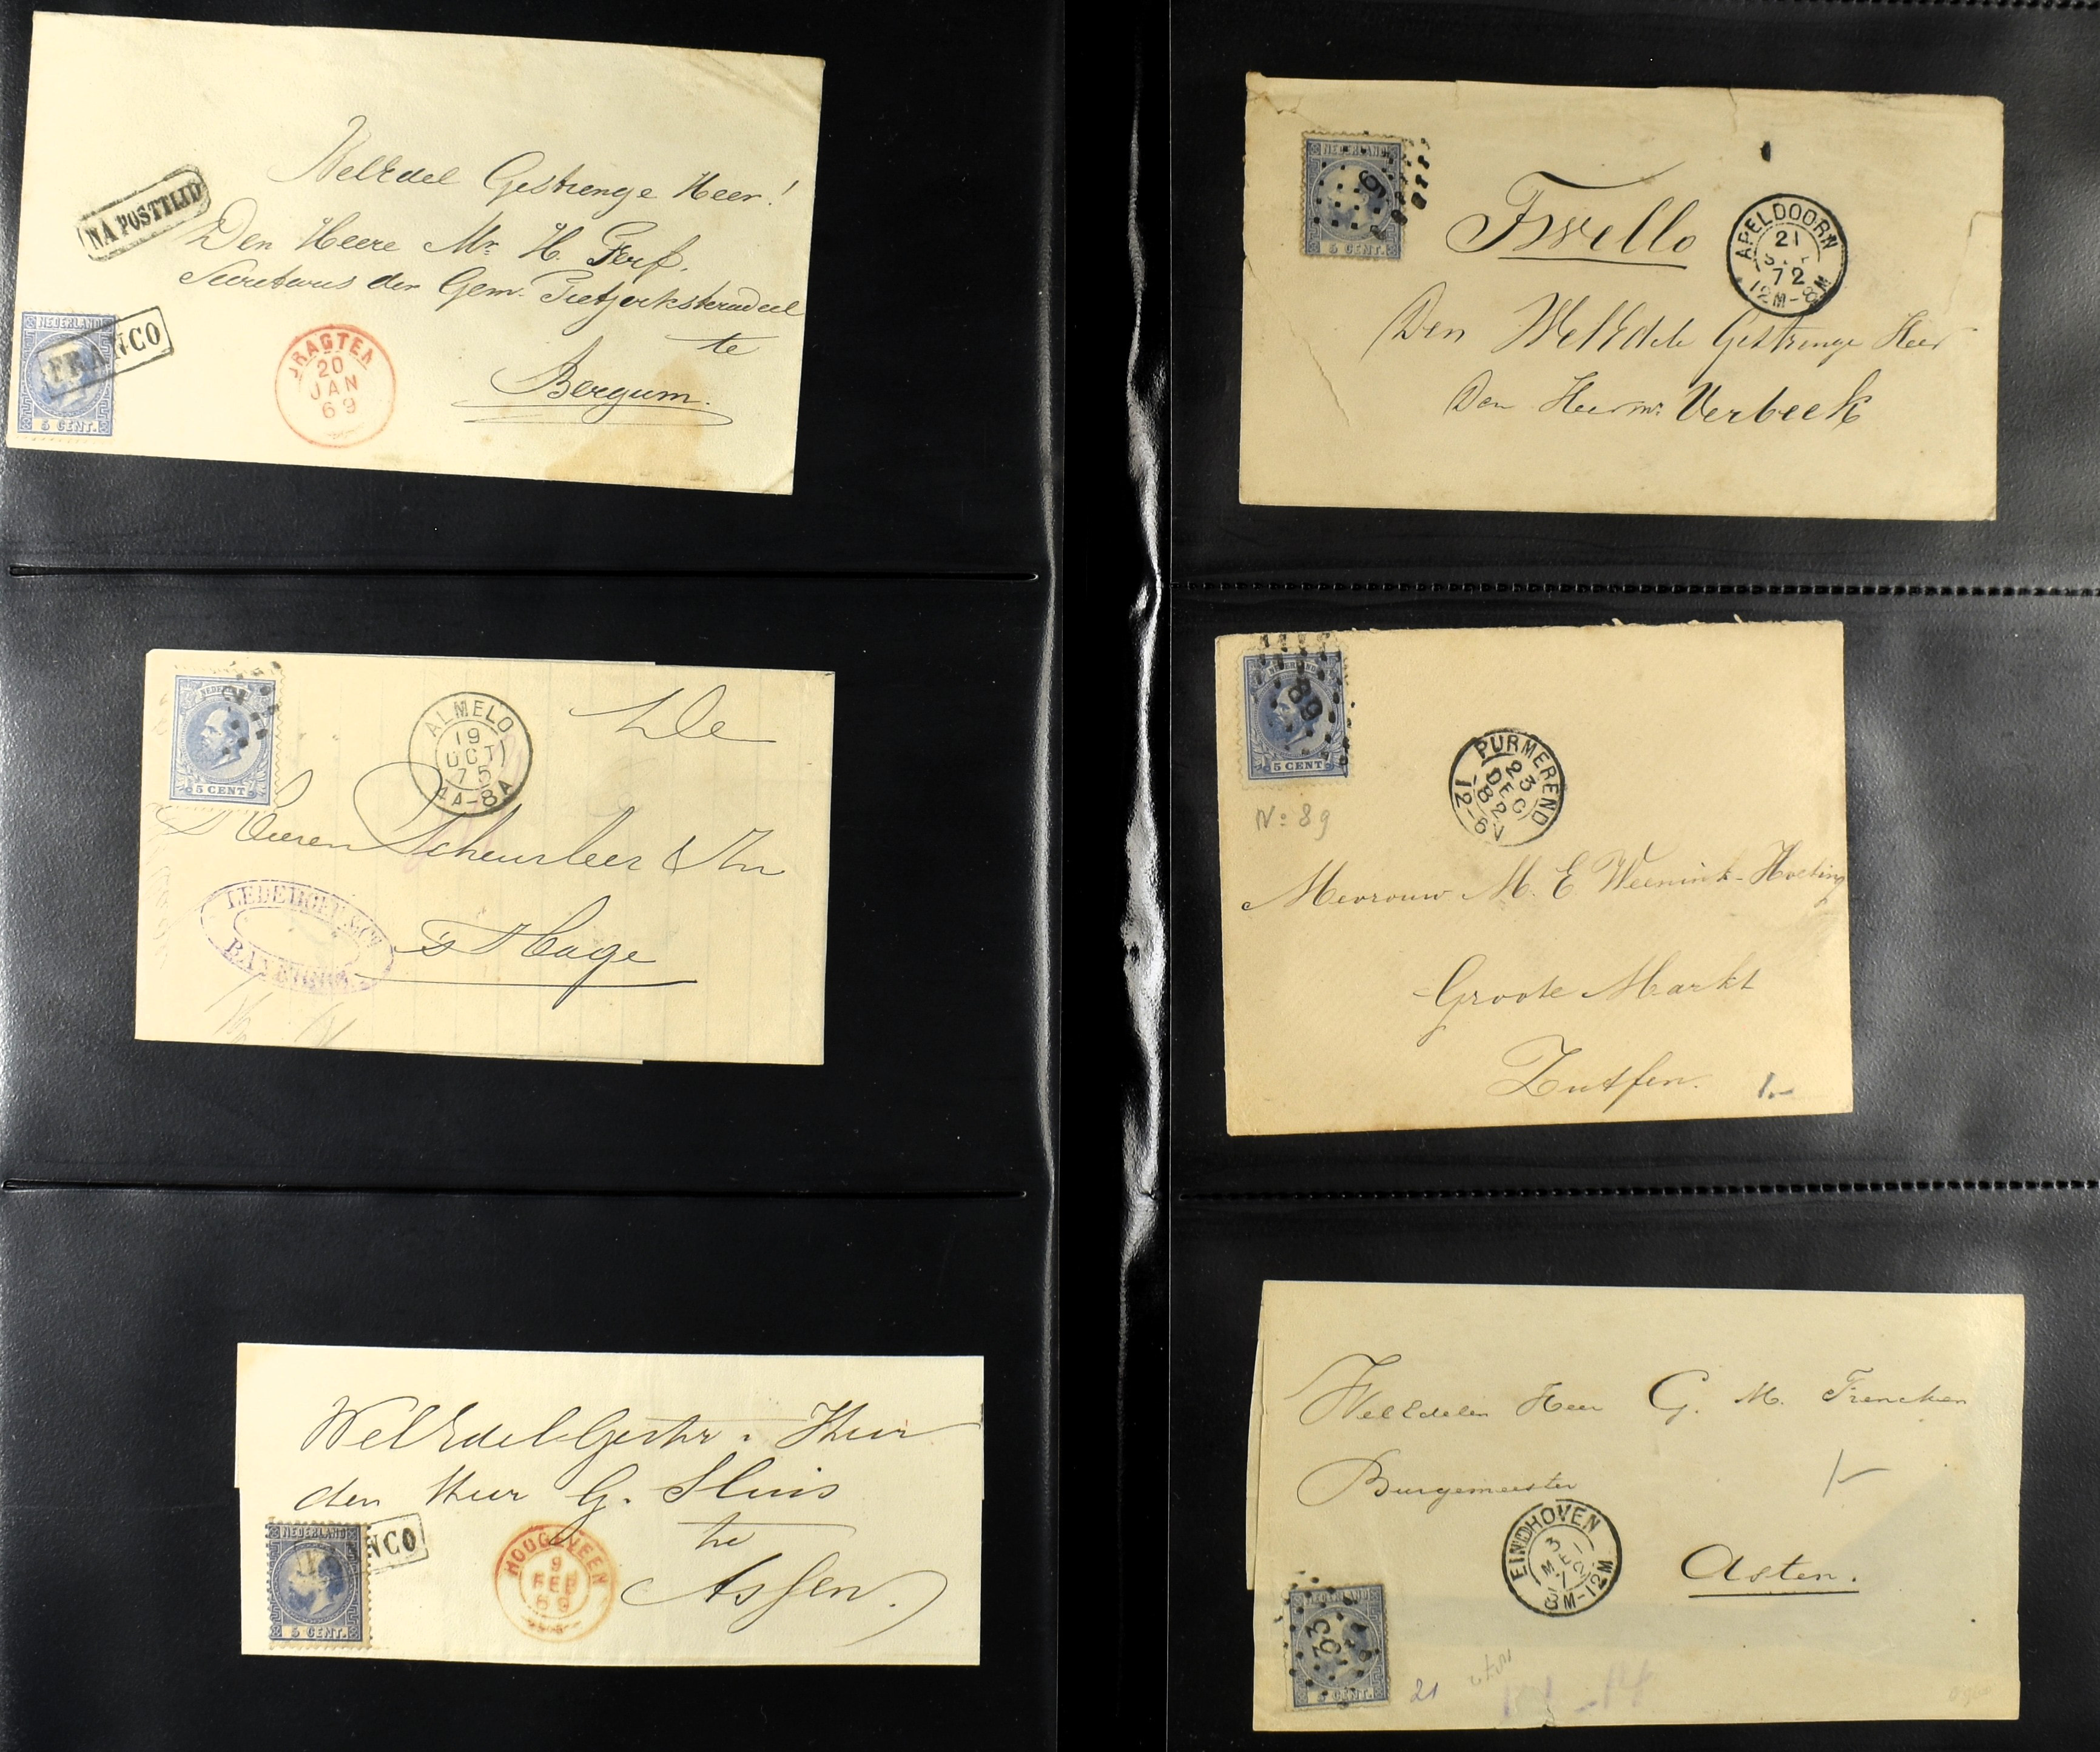 WelEdel Gestrenge Heer!
NA POSTTIJD
Den Heere Mr. H. Ferf.
Secretaris der Gem. Tietjerksteradeel
te
Bergum.
NEDERLAND
FRANCO
5 CENT.
DRAGTEN
20
JAN
69
NEDERLAND
5 CENT
ALMELO
19
OCT
75
4A-8A
De
Heeren Scheurleer & Zn
's Hage
LEDEBOER & Co
WelEdelGestr. Heer
den Heer G. Sluis
te
Assen.
NEDERLAND
NCO
5 CENT.
HOOGEVEEN
9
FEB
69
NEDERLAND
6
5 CENT.
Twello
APELDOORN
21
72
12M-8M
Den WelEdele Gestrenge Heer
Den Heer Mr. Verbeek
NEDERLAND
89
5 CENT
No 89
PURMEREND
23
DEC
82
12-6V
Mevrouw M. E. Weenink-Hoeting
Groote Markt
Zutfen.
1.-
WelEdelen Heer G. M. Frencken
Burgemeester
EINDHOVEN
3
8M-12M
Asten.
NEDERLAND
33
5 CENT.
21